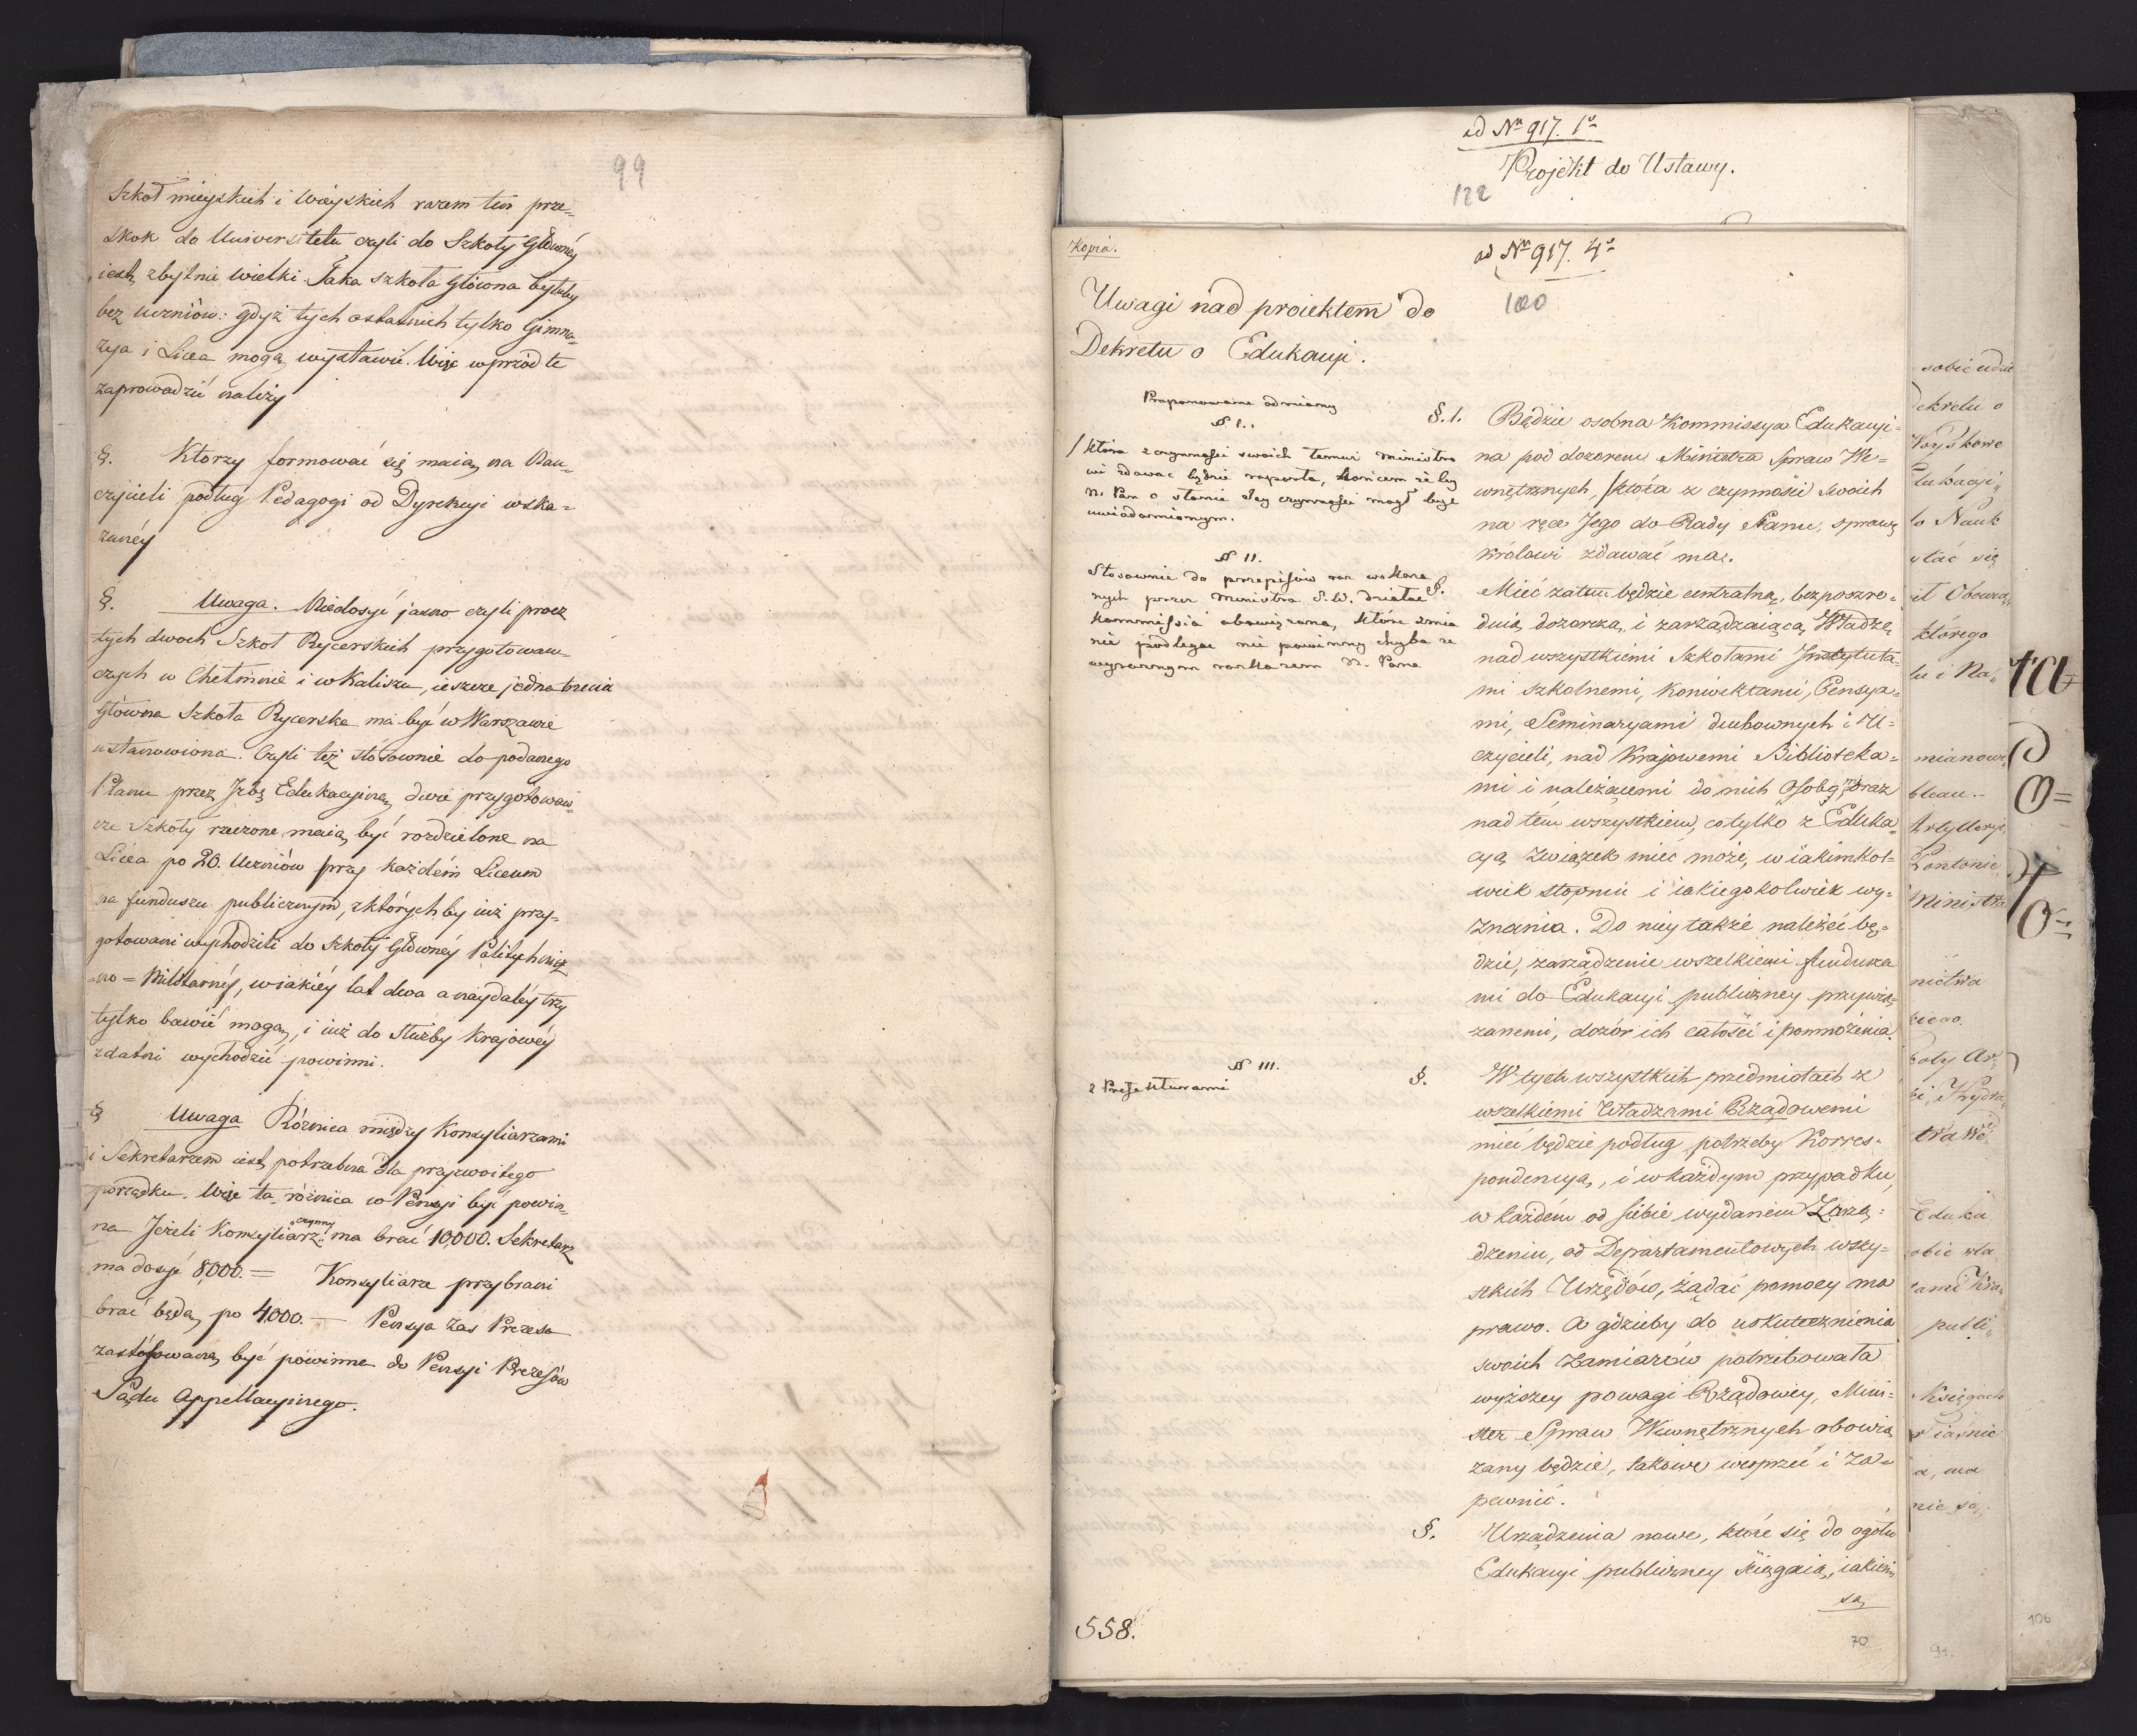 99
Szkoł mieyskich i Wieyskich razem ten prze-
skok do Uniwersitetu czyli do Szkoły Główney
iest zbytnie wielki. Taka szkoła Główna byłaby
bez uczniów: gdyż tych ostatnich tylko Gimna-
zya i Licea mogą wystawić. Więc wprzód te
zaprowadzić należy
§. Ktorzy formować się maią na Nau-
czycieli podług Pedagogi od Dyrekcyi wska-
zaney
§. Uwaga. Niedosyć jasno czyli procz
tych dwoch Szkoł Rycerskich przygotowaw-
czych w Chełmnie i w Kaliszu, ieszcze jedna trzecia
Główna Szkoła Rycerska ma być w Warszawie
ustanowiona. Czyli też stósownie do podanego
Planu przez Izbę Edukacyiną dwie przygotowaw-
cze Szkoły rzeczone maią być rozdzielone na
Licea po 20. Uczniów przy każdém Liceum
na funduszu publicznym, z których by iuż przy-
gotowani wychodzili do Szkoły Główney Politychnicz
-no-Militarney, w iakiéy lat dwa a naydaléy trzy
tylko bawić mogą, i iuż do Służby Krajowéy
zdatni wychodzić powinni.
§ Uwaga Róźnica między Konsyliarzami
i Sekretarzem iest potrzebna dla przyzwoitego
porządku. Więc ta róźnica w Pensyi być powin-
na Jeżeli Konsyliarz czynny ma brać 10,000. Sekretarz
ma dosyć 8,000.= Konsyliarze przybrani
brać będą po 4,000.— Pensya zas Prezesa
zastósowaną być powinna do Pensyi Prezesów
Sądu Appellacyinego.
ad Nrn 917. 1o
Projekt do Ustawy.
122
Kopia.
ad Nrn 917. 4o
100
Uwagi nad proiektem do
Dekretu o Edukacyi.
Proponowane odmiany
§ I.
/ która z czynności swoich temuż Ministro
wi zdawać będzie raporta, końcem żeby
N. Pan o stanie Jey czynności mógł bydź
uwiadomionym.
§ II.
Stosownie do przepisów wskaza
nych przez Ministra S. W. działać
Kommissia obowiązana, które zmia
nie podlegać nie powinny chyba za
wyraznym rozkazem N. Pana
§ III.
z Prefekturami
§. 1. Będzie osobna Kommissya Edukacyi-
na pod dozorem Ministra Spraw We-
wnętrznych, /która z czynności swoich
na ręce Jego do Rady Stanu, sprawę
Królowi zdawać ma.
§. Mieć zatem będzie centralną, bezpośre-
dnią dozorczą, i zarządzaiącą Władzę
nad wszystkiemi Szkołami Instytuta-
mi szkolnemi, Konwiktami, Pensya-
mi, Seminaryami duchownych i U-
czycieli, nad Krajowemi Biblioteka-
mi i należącemi do nich Osoby, oraz
nad tém wszystkiem, co tylko z Eduka-
cyą związek mieć może, w iakimkol-
wiek stopniu i iakiegokolwiek wy-
znania. Do niey także należeć bę-
dzie, zarządzenie wszelkiemi fundusza
mi do Edukacyi publiczney przywią-
zanemi, dozór ich całości i pomnożenia.
§. W tych wszystkich przedmiotach z
wszelkiemi Władzami Rządowemi
mieć będzie podług potrzeby Korres-
pondencyą, i w każdym przypadku,
w każdem od siebie wydanem Zarzą-
dzeniu, od Departamentowych wszy-
stkich Urzędów, żądać pomocy ma
prawo. A gdzieby do uskutecznienia
swoich Zamiarów potrzebowała
wyższey powagi Rządowey, Mini-
ster Spraw Wewnętrznych obowią
zany będzie, takowe wesprzeć i za-
pewnić.
§. Urządzenia nowe, które się do ogółu
Edukacyi publiczney ściągaią, iakiemi
są
558.
70
sobie udzie
Dekretu o
Woyskowe
Edukacyi
to Nauk
stać się
it Obowią
którego
lu i Na
mianowi
bleau.-
Artylleryi,
Pontonie
Ministra
nictwa
kiego
koły Ar
Eduka
obie wła
publi
Księgach
iaśnie
a, ma
nie są
91.
106